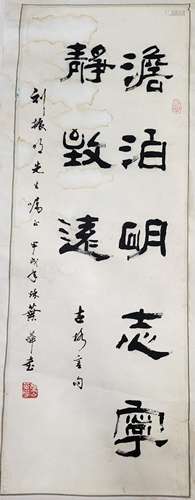 澹泊明志寧
靜致遠
古格言句
利振明先生嘱正
甲戌年 蘇華書